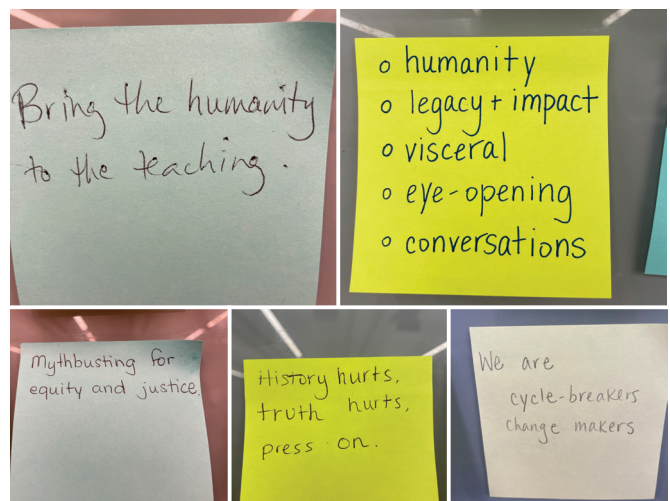 Bring the humanity
to the teaching.
o humanity
o legacy + impact
o visceral
o eye-opening
o conversations
Mythbusting for
equity and justice.
History hurts,
truth hurts,
press on.
We are
cycle-breakers
change makers